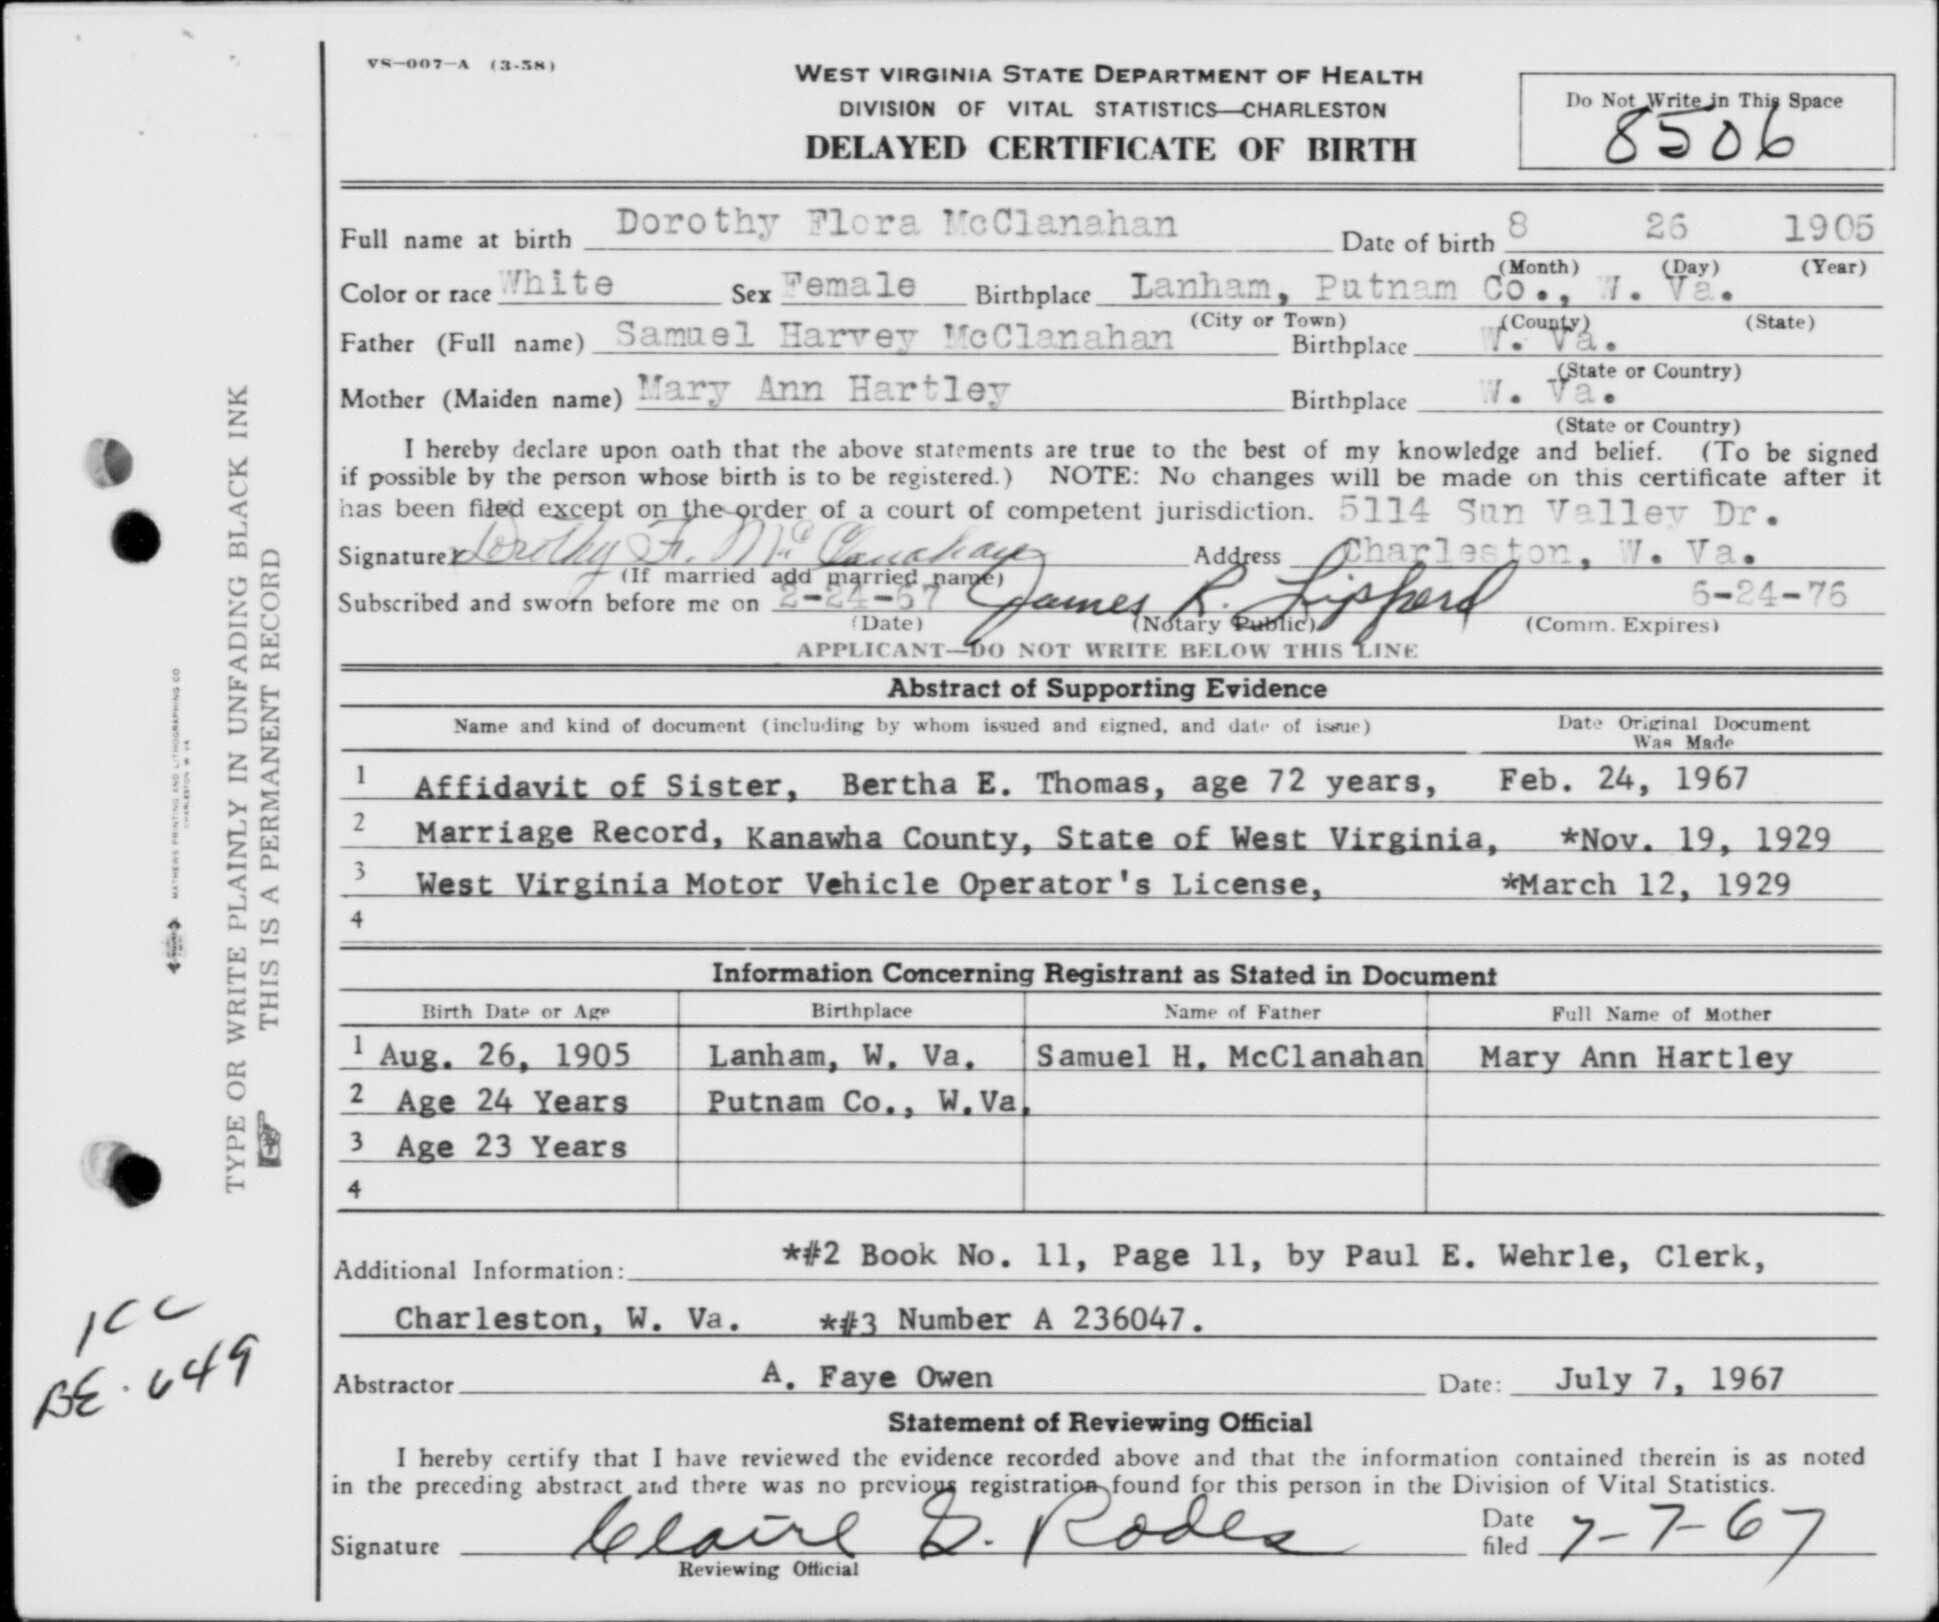 VS-007-A (3-58)
WEST VIRGINIA STATE DEPARTMENT OF HEALTH
DIVISION OF VITAL STATISTICS—CHARLESTON
DELAYED CERTIFICATE OF BIRTH
Do Not Write in This Space
8506
Full name at birth Dorothy Flora McClanahan Date of birth 8 26 1905
(Month) (Day) (Year)
Color or race White Sex Female Birthplace Lanham, Putnam Co., W. Va.
(City or Town) (County) (State)
Father (Full name) Samuel Harvey McClanahan Birthplace W. Va.
(State or Country)
Mother (Maiden name) Mary Ann Hartley Birthplace W. Va.
(State or Country)
I hereby declare upon oath that the above statements are true to the best of my knowledge and belief. (To be signed
if possible by the person whose birth is to be registered.) NOTE: No changes will be made on this certificate after it
has been filed except on the order of a court of competent jurisdiction. 5114 Sun Valley Dr.
Signature x Dorothy F. McClanahan Address Charleston, W. Va.
(If married add married name)
Subscribed and sworn before me on 2-24-67 James R. 6-24-76
(Date) (Notary Public) (Comm. Expires)
APPLICANT—DO NOT WRITE BELOW THIS LINE
Abstract of Supporting Evidence
Name and kind of document (including by whom issued and signed, and date of issue) Date Original Document
Was Made
1 Affidavit of Sister, Bertha E. Thomas, age 72 years, Feb. 24, 1967
2 Marriage Record, Kanawha County, State of West Virginia, *Nov. 19, 1929
3 West Virginia Motor Vehicle Operator's License, *March 12, 1929
4
Information Concerning Registrant as Stated in Document
Birth Date or Age Birthplace Name of Father Full Name of Mother
1 Aug. 26, 1905 Lanham, W. Va. Samuel H. McClanahan Mary Ann Hartley
2 Age 24 Years Putnam Co., W.Va.
3 Age 23 Years
4
Additional Information: *#2 Book No. 11, Page 11, by Paul E. Wehrle, Clerk,
Charleston, W. Va. *#3 Number A 236047.
Abstractor A. Faye Owen Date: July 7, 1967
Statement of Reviewing Official
I hereby certify that I have reviewed the evidence recorded above and that the information contained therein is as noted
in the preceding abstract and there was no previous registration found for this person in the Division of Vital Statistics.
Signature Claire G. Rodes Date filed 7-7-67
Reviewing Official
TYPE OR WRITE PLAINLY IN UNFADING BLACK INK
THIS IS A PERMANENT RECORD
MATHEWS PRINTING AND LITHOGRAPHING CO
CHARLESTON W VA
1CC
BE. 649